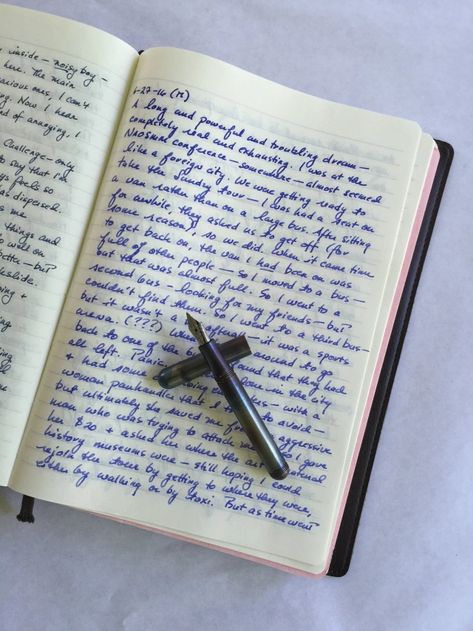 inside - noisy boy -
here. The main
various ones, I can't
ng. Now I hear
d of annoying. I
Challenge - only
to say that in
ays feels so
as dispersed.
s me
things and
to wait on
otta - but
deslide.
ing +
6-27-16 (M)
A long and powerful and troubling dream -
completely real and exhausting. I was at the
NAOSMM conference - somewhere - almost seemed
like a foreign city. We were getting ready to
take the Sunday tour - I was had a seat on
a van rather than on a large bus. After sitting
for awhile, they asked us to get off (for
some reason), so we did. When it came time
to get back on, the van I had been on was
full of other people - so I moved to a bus -
but that was almost full. So I went to a
second bus - looking for my friends - but
couldn't find them. So I went to a third bus -
but it wasn't a it was a sports
arena. (???) When around to go
back to one of the found that they had
all left. Panic in the city
& had some - with a
woman panhandler that I avoid -
but ultimately she saved me aggressive
man who was trying to attack me. So I gave
her $20 & asked her where the art natural
history museums were - still hoping I could
rejoin the tour by getting to where they were,
either by walking or by taxi. But as time went